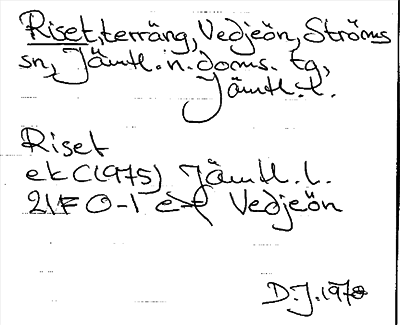 Riset, terräng, Vedjeön, Ströms
sn, Jämtl. n. doms. tg,
Jämtl. l.
Riset
ek C(1975) Jämtl. l.
21F 0-1 e-f Vedjeön
D.J. 1978